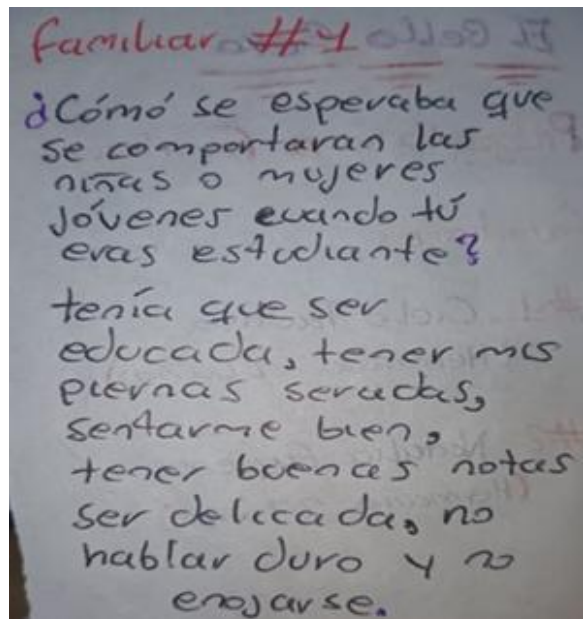 familiar #1
¿Cómo se esperaba que
se comportaran las
niñas o mujeres
jóvenes cuando tú
eras estudiante?
tenía que ser
educada, tener mis
piernas seradas,
sentarme bien,
tener buenas notas
ser delicada, no
hablar duro y no
enojarse.